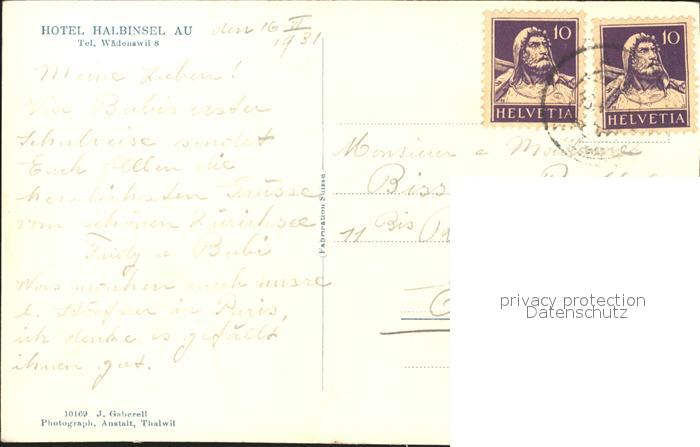 HOTEL HALBINSEL AU
Tel. Wädenswil 8
den 16 VI 1931
Meine Lieben!
Von Bubis erster
Schulreise sendet
Euch Allen die
herzlichsten Grüsse
vom schönen Zürichsee
Friedy u. Bubi
Was machen auch unsre
l. in Paris,
ich denke es gefällt
ihnen gut.
10169 J. Gaberell
Photograph. Anstalt, Thalwil
Fabrication Suisse
10
HELVETIA
10
HELVETIA
Monsieur e
Biss
11 Bis
privacy protection
Datenschutz